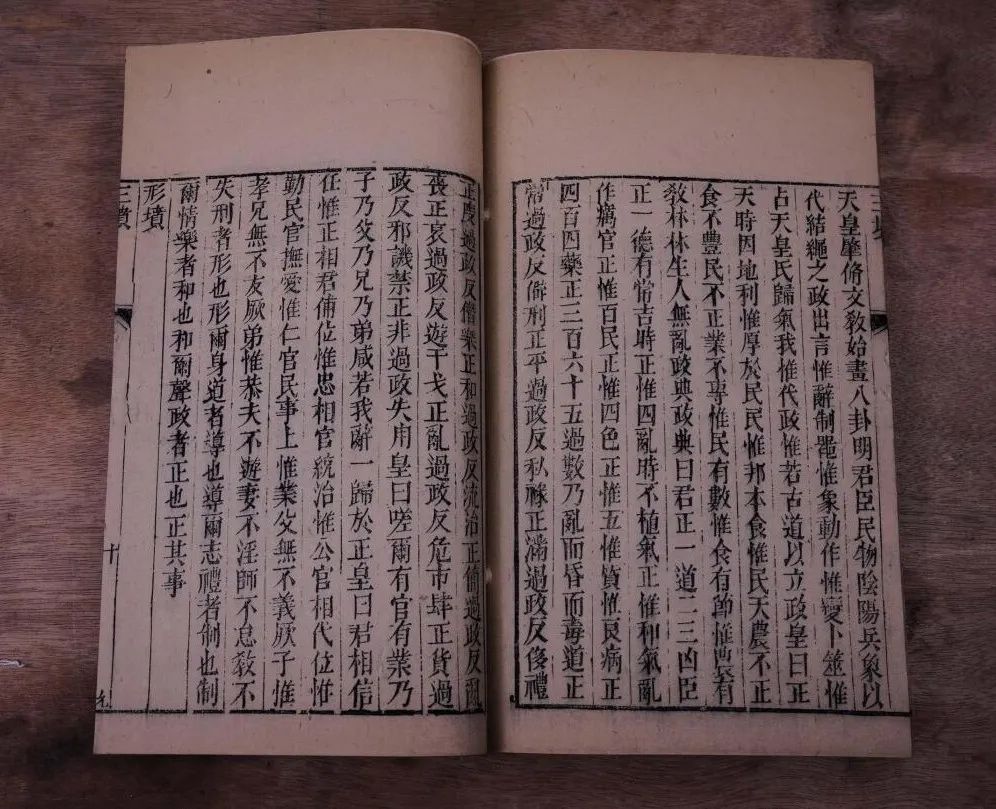 三墳
天皇肇脩文敎始畫八卦明君臣民物陰陽兵象以
代結繩之政出言惟辭制噐惟象動作惟變卜筮惟
占天皇氏歸氣我惟代政惟若古道以立政皇曰正
天時因地利惟厚於民民惟邦本食惟民天農不正
食不豐民不正業不專惟民有數惟食有節惟農有
敎林林生人無亂政典政典曰君正一道二三凶臣
正一德有常吉時正惟四亂時不植氣正惟和氣亂
作癘官正惟百民正惟四色正惟五惟質惟良病正
四百四藥正三百六十五過數乃亂而昏而毒道正
常過政反僻刑正平過政反私祿正滿過政反侈禮
正度過政反僭樂正和過政反流治正簡過政反亂
喪正哀過政反遊干戈正亂過政反危市肆正貨過
政反邪譏禁正非過政失用皇曰嗟爾有官有業乃
子乃父乃兄乃弟咸若我辭一歸於正皇曰君相信
任惟正相君俌位惟忠相官統治惟公官相代位惟
勤民官撫愛惟仁官民事上惟業父無不義厥子惟
孝兄無不友厥弟惟恭夫不遊妻不淫師不怠敎不
失刑者形也形爾身道者導也導爾志禮者制也制
爾情樂者和也和爾聲政者正也正其事
形墳
三墳
十